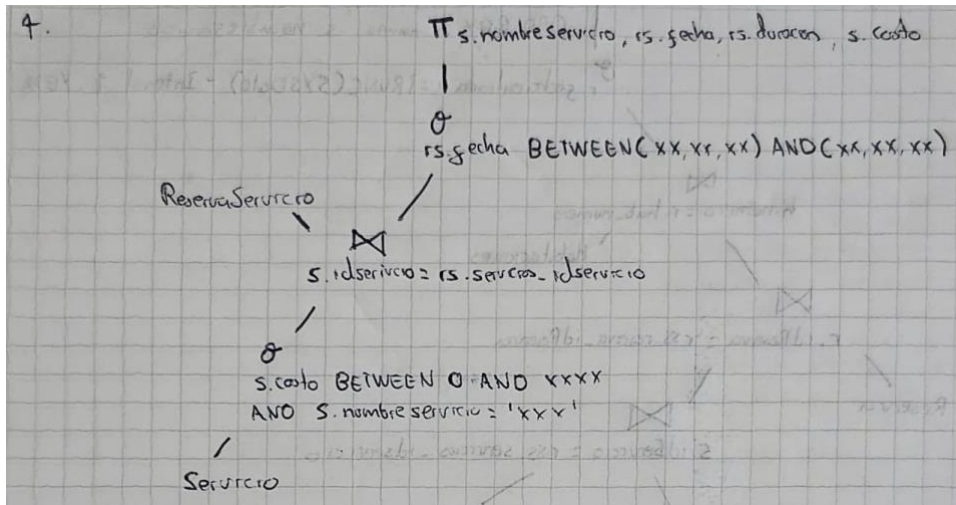 4.
π s.nombreservicio, rs.fecha, rs.duracon, s.costo
σ
rs.fecha BETWEEN(xx,xx,xx) AND(xx,xx,xx)
ReservaServicio
⋈
s.idserivcio = rs.servicios_idservicio
σ
s.costo BETWEEN 0 AND xxxx
AND s.nombreservicio = 'xxx'
Servicio